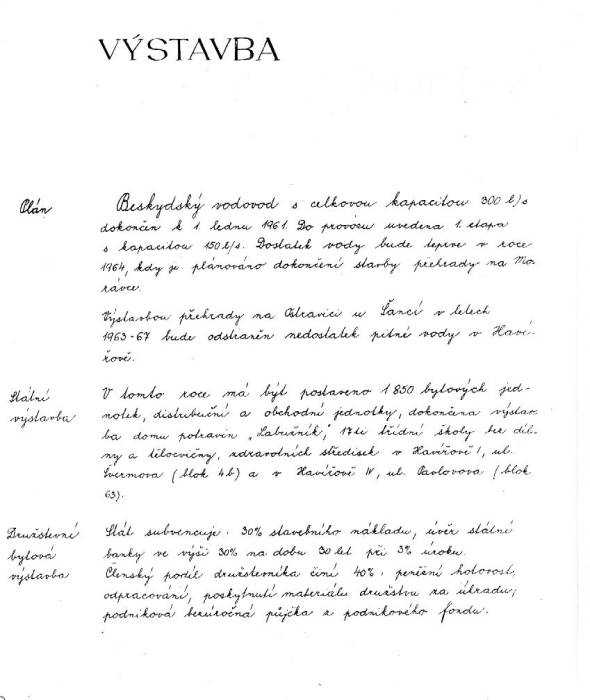 VÝSTAVBA
Plán
Beskydský vodovod s celkovou kapacitou 300 l/s
dokončen k 1. lednu 1961. Do provozu uvedena 1. etapa
s kapacitou 150 l/s. Dostatek vody bude teprve v roce
1964, kdy je plánováno dokončení stavby přehrady na Mo-
rávce.
Výstavbou přehrady na Ostravici u Šancí v letech
1963-67 bude odstraněn nedostatek pitné vody v Haví-
řově.
Státní
výstavba
V tomto roce má být postaveno 1 850 bytových jed-
notek, distribuční a obchodní jednotky, dokončena výstav-
ba domu potravin „Labužník," 17ti třídní školy bez díl-
ny a tělocvičny, zdravotních středisek v Havířově I, ul.
Švermova (blok 4b) a v Havířově IV, ul. Pavlovova (blok
63).
Družstevní
bytová
výstavba
Stát subvencuje 30% stavebního nákladu, úvěr státní
banky ve výši 30% na dobu 30 let při 3% úroku.
Členský podíl družstevníka činí 40%: peněžní hotovost,
odpracování, poskytnutí materiálu družstvu za úhradu;
podniková bezúročná půjčka z podnikového fondu.